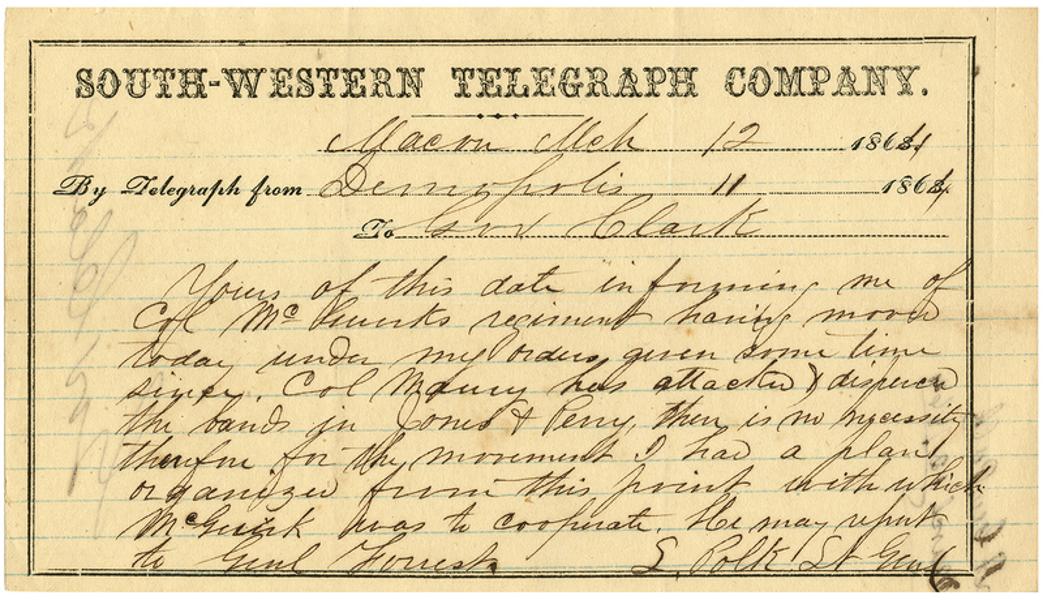 SOUTH-WESTERN TELEGRAPH COMPANY.
Macon Mch 12 1864
By Telegraph from Demopolis 11 1864
To Gov Clark
Yours of this date informing me of
Col McGuirks regiment having moved
today under my orders, given some time
since. Col Maury has attacked & dispersed
the bands in Jones & Perry, there is no necessity
therefore for the movement I had a plan
organized from this point with which
McGuirk was to cooperate. He may report
to Genl Forrest. L. Polk Lt Genl